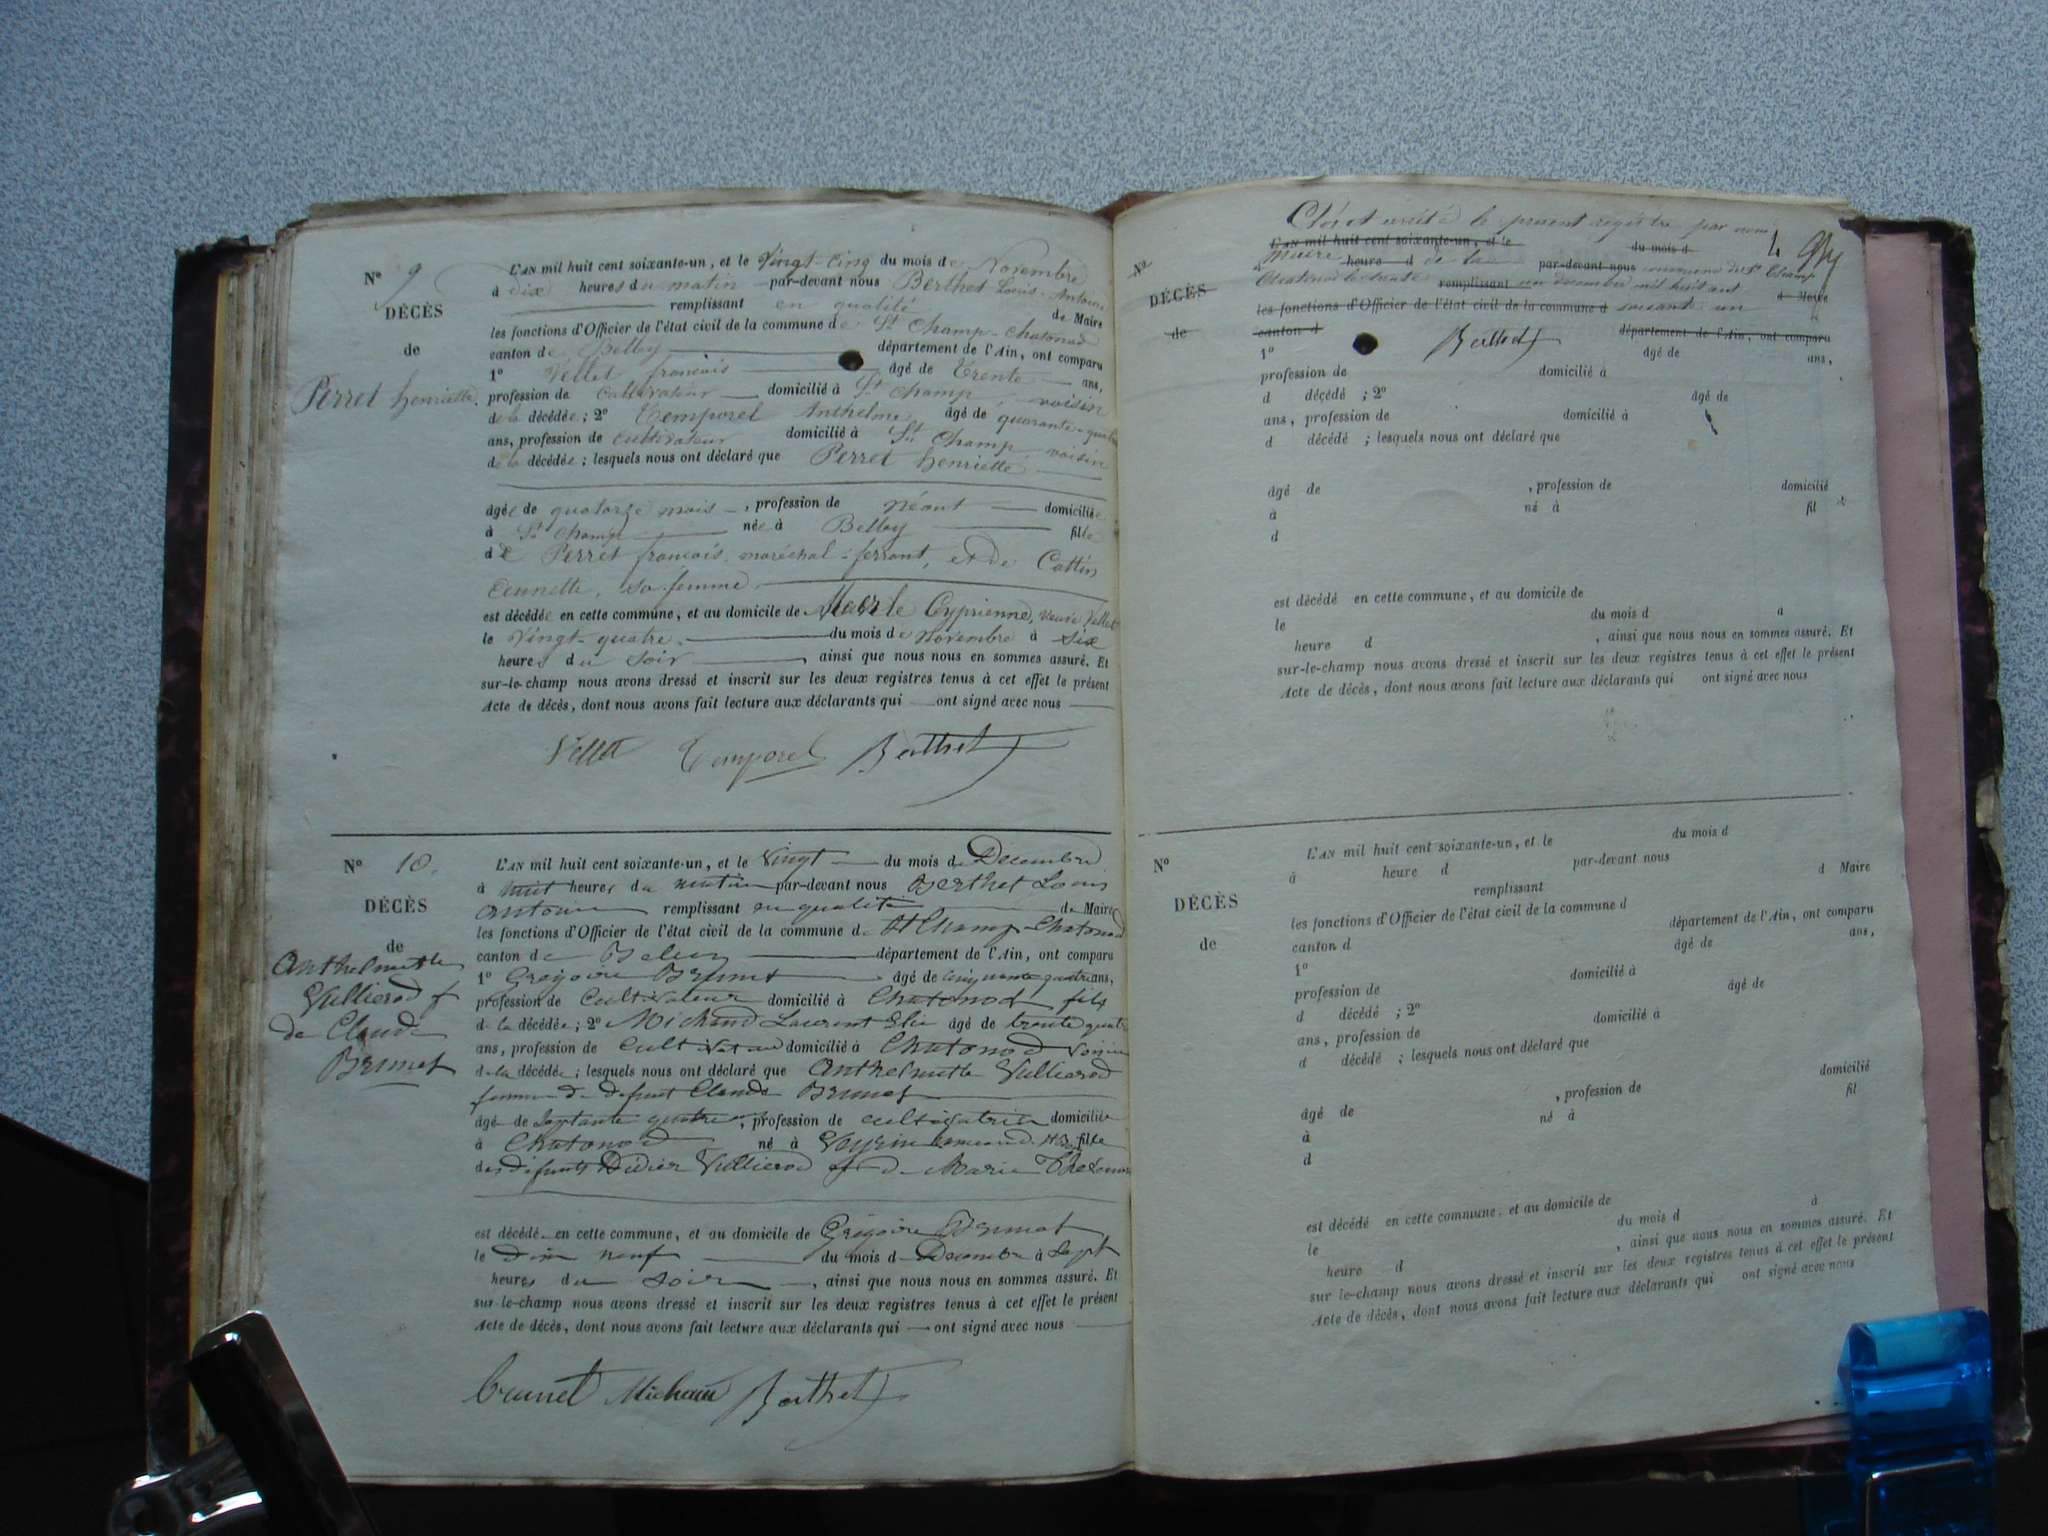 N° 9
DÉCÈS
de
Perret henriette.
L'AN mil huit cent soixante-un, et le Vingt-Cinq du mois de Novembre
à dix heures du matin par-devant nous Berthet Louis-Antoine
remplissant en qualité de Maire
les fonctions d'Officier de l'état civil de la commune de St Champ-Chatonod
canton de Belley département de l'Ain, ont comparu
1° Vellet francois âgé de Trente ans,
profession de Cultivateur domicilié à St Champ, voisin
de la décédée; 2° Temporel Anthelme, âgé de quarante-quatre
ans, profession de Cultivateur domicilié à St Champ, voisin
de la décédée; lesquels nous ont déclaré que Perret henriette
âgée de quatorze mois, profession de néant domiciliée
à St Champ née à Belley fille
de Perret francois, maréchal-ferrant, et de Cattin
sa femme
est décédée en cette commune, et au domicile de Cyprienne, veuve Vellet
le Vingt-quatre du mois de Novembre à Six
heures du Soir, ainsi que nous nous en sommes assuré. Et
sur-le-champ nous avons dressé et inscrit sur les deux registres tenus à cet effet le présent
Acte de décès, dont nous avons fait lecture aux déclarants qui ont signé avec nous
Vellet Temporel Berthet
N° 10.
DÉCÈS
de
Anthelmette
Vullierod f
de Claude
Brunet
L'AN mil huit cent soixante-un, et le Vingt du mois de Decembre
à huit heures du matin par-devant nous Berthet Louis
Antoine remplissant en qualité de Maire
les fonctions d'Officier de l'état civil de la commune de St Champ-Chatonod
canton de Belley département de l'Ain, ont comparu
1° Grégoire Brunet âgé de cinquante quatre ans,
profession de Cultivateur domicilié à Chatonod fils
de la décédée; 2° Michaud Laurent Elie âgé de trente quatre
ans, profession de Cultivateur domicilié à Chatonod voisin
de la décédée; lesquels nous ont déclaré que Anthelmette Vullierod
femme de defunt Claude Brunet
âgé de Septante quatre, profession de cultivatrice domiciliée
à Chatonod né à fille
des défunts Didier Vullierod et de Marie
est décédé en cette commune, et au domicile de Grégoire Brunet
le Dix neuf du mois de Decembre à Sept
heures du Soir, ainsi que nous nous en sommes assuré. Et
sur-le-champ nous avons dressé et inscrit sur les deux registres tenus à cet effet le présent
Acte de décès, dont nous avons fait lecture aux déclarants qui ont signé avec nous
brunet Michaud Berthet
Clos et arrêté le présent registre par nous
L'AN mil huit cent soixante-un, et le du mois d
Maire heure d de la par-devant nous commune de St Champ
N° Chatonod le trente remplissant un décembre mil huit cent
DÉCÈS les fonctions d'Officier de l'état civil de la commune d soixante un d Maire
de canton d département de l'Ain, ont comparu
Berthet
1° âgé de ans,
profession de domicilié à
d décédé ; 2° âgé de
ans, profession de domicilié à
d décédé ; lesquels nous ont déclaré que
âgé de , profession de domicilié
à né à fil
d
est décédé en cette commune, et au domicile de
le du mois d à
heure d , ainsi que nous nous en sommes assuré. Et
sur-le-champ nous avons dressé et inscrit sur les deux registres tenus à cet effet le présent
Acte de décès, dont nous avons fait lecture aux déclarants qui ont signé avec nous
N°
DÉCÈS
de
L'AN mil huit cent soixante-un, et le du mois d
à heure d par-devant nous
remplissant d Maire
les fonctions d'Officier de l'état civil de la commune d
canton d département de l'Ain, ont comparu
1° âgé de ans,
profession de domicilié à
d décédé ; 2° âgé de
ans, profession de domicilié à
d décédé ; lesquels nous ont déclaré que
âgé de , profession de domicilié
à né à fil
d
est décédé en cette commune, et au domicile de
le du mois d à
heure d , ainsi que nous nous en sommes assuré. Et
sur le-champ nous avons dressé et inscrit sur les deux registres tenus à cet effet le présent
Acte de décès, dont nous avons fait lecture aux déclarants qui ont signé avec nous